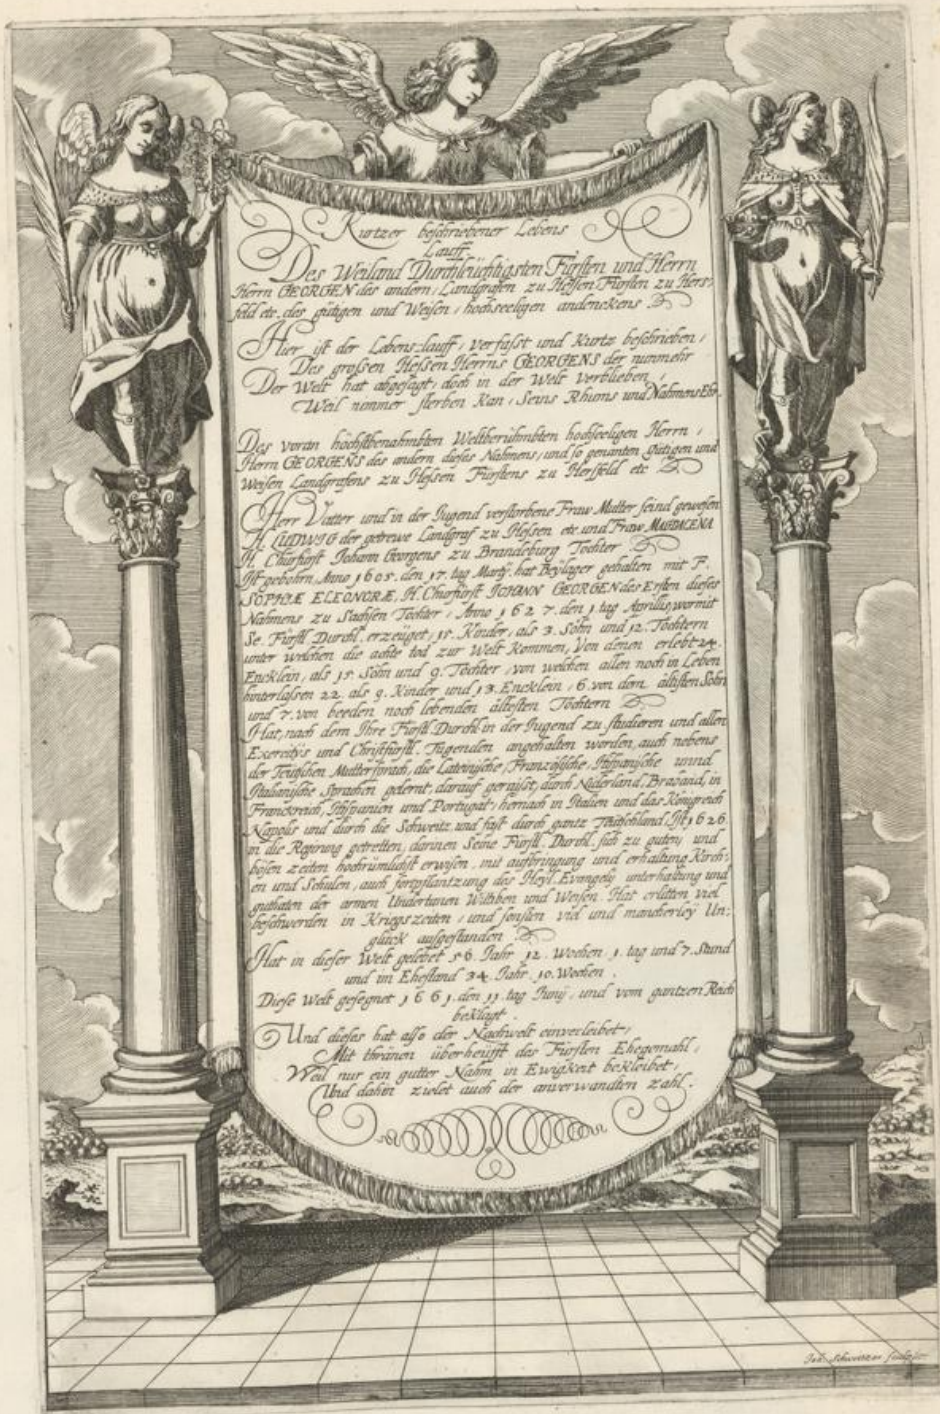 Kurtzer beschriebener Lebens
Lauff.
Des Weiland Durchleüchtigsten Fürsten und Herrn
Herrn GEORGEN des andern, Landgrafen zu Hessen, Fürsten zu Hers,
feld etc. des gütigen und Weisen, hochseeligen andenckens
Hier ist der Lebens-lauff, verfasst und Kurtz beschrieben,
Des grossen Hessen Herrns GEORGENS der nunmehr
Der Welt hat abgesagt, doch in der Welt verblieben,
Weil nimmer sterben Kan, Seins Rhums und Nahmens Ehr.
Des voran höchstbenahmbten Weltberühmbten hochseeligen Herrn,
Herrn GEORGENS des andern dieses Nahmens, und so genanten gütigen und
Weisen Landgrafens zu Hessen Fürstens zu Hersfeld etc
Herr Vatter und in der Jugend verstorbene Fraw Mutter seind gewesen
H. LUDWIG der getrewe Landgraf zu Hessen etc und Fraw MAGDALENA
H. Churfürst Johann Georgens zu Brandeburg Tochter
Ist gebohrn, Anno 1605. den 17. tag Martÿ. hat Beylager gehalten mit F.
SOPHIÆ ELEONORÆ, H. Churfürst JOHANN GEORGEN des Ersten dieses
Nahmens zu Sachsen Tochter, Anno 1627. den 1 tag Aprillis, wormit
Se. Fürstl Durchl. erzeuget, 15. Kinder, als 3. Söhn und 12. Töchtern
unter welchen die achte tod zur Welt kommen, Von denen erlebt 24.
Encklein, als 15. Söhn und 9. Töchter, von welchen allen noch in Leben
hinterlassen 22. als 9. Kinder und 13. Encklein, 6. von dem ältisten Sohn
und 7. von beeden noch lebenden ältesten Töchtern
Hat, nach dem Ihre Fürstl. Durchl. in der Jugend zu studieren und allen
Exercitÿs und Christfürstl. Tugenden angehalten worden, auch nebens
der Teutschen Mutter sprach, die Lateinische, Französische, Hispanische unnd
Italianische Sprachen gelernt, darauf geraisst, durch Niderland, Braband, in
Franckreich, Hispanien und Portugal, hernach in Italien und das Königreich
Napolis und durch die Schweitz, und fast durch gantz Teutschland, Ist 1626
in die Regirung getretten, darinen Seine Fürstl. Durchl. sich zu guten, und
bösen zeiten hochrümlichst erwisen, mit aufbringung und erhaltung Kirch-
en und Schulen, auch fortpflantzung des Heyl. Evangelÿ unterhaltung und
guthaten der armen Undertanen Wittiben und Weysen. Hat erlitten viel
beschwerden in Kriegszeiten, und sonsten viel und mancherley Un:
glück aufgestanden
Hat in dieser Welt gelebet 56. Jahr 12. Wochen 1. tag und 7. Stund
und im Ehestand 34. Jahr. 10. Wochen.
Diese Welt gesegnet 1661. den 11. tag Junÿ, und vom gantzen Reich
beklagt.
Und dieses hat also der Nachwelt einverleibet,
Mit thränen überheüfft des Fürsten Ehegemahl,
Weil nur ein gutter Nahm in Ewigkeit bekleibet,
Und dahin zielet auch der anverwandten zahl.
Joh. Schweizer sculpsit